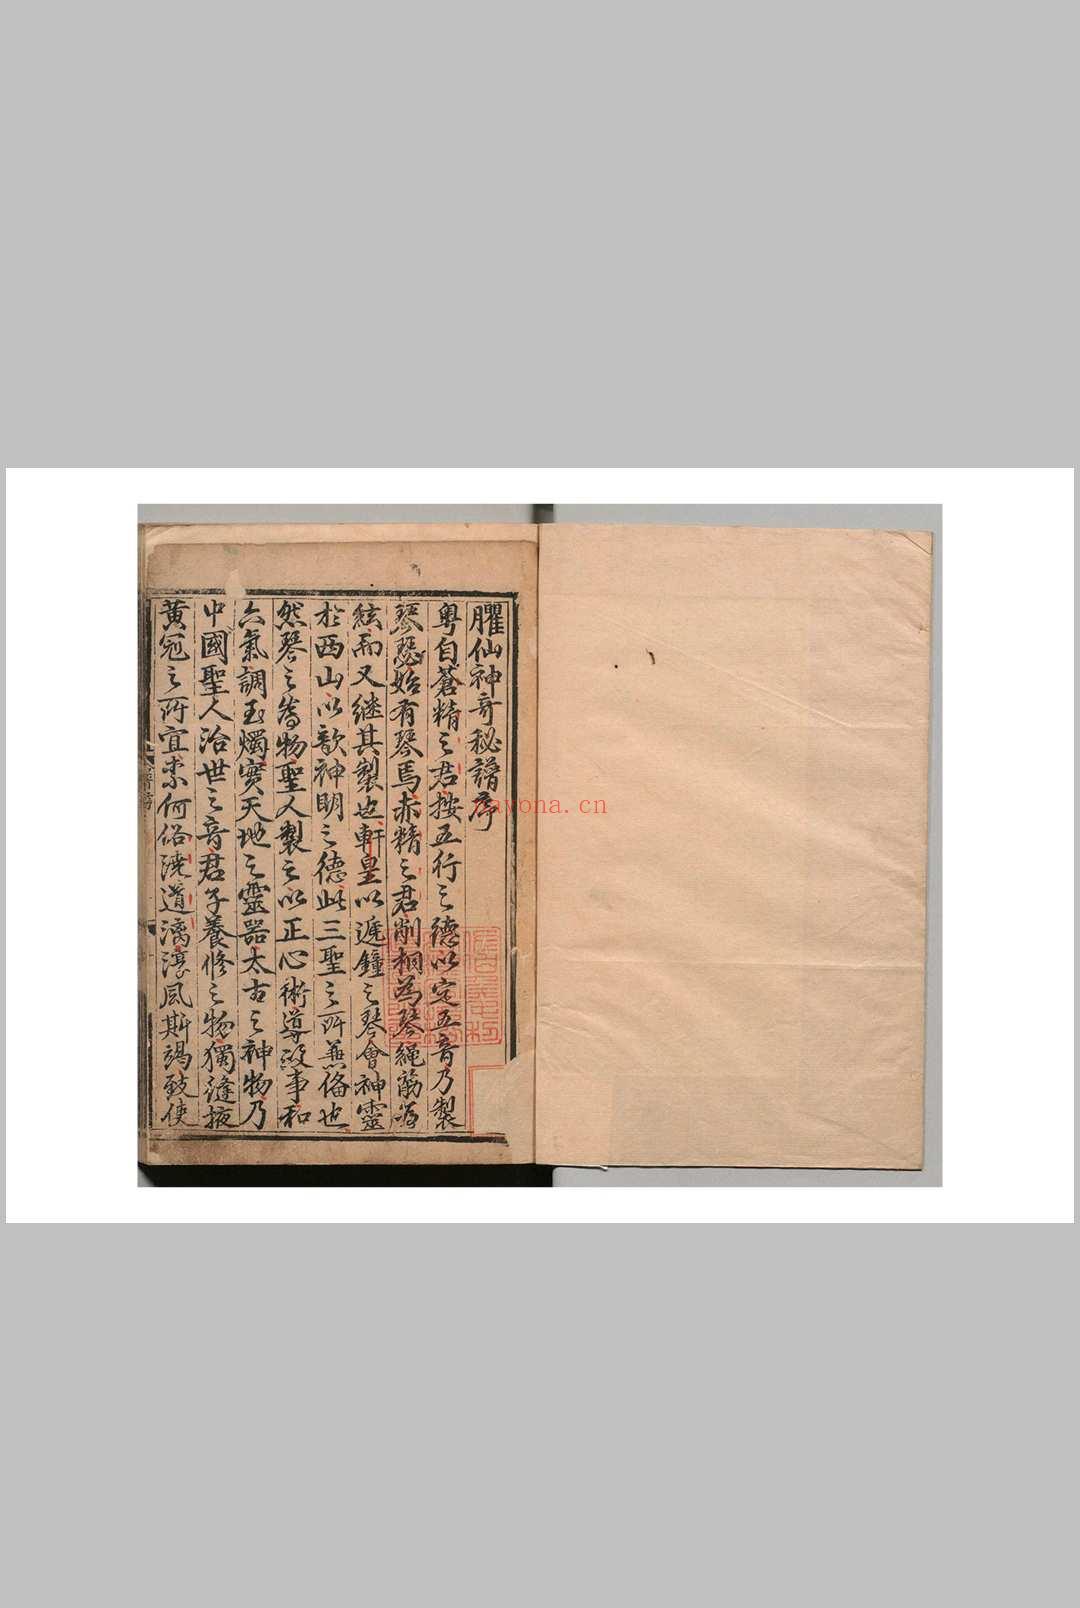 臞仙神奇秘譜序
粵自蒼精之君按五行之德以定五音乃製
琴瑟始有琴焉赤精之君削桐為琴繩絲為
絃而又継其製也軒皇以遞鐘之琴會神靈
於西山以歆神明之德此三聖之所兼俻也
然琴之為物聖人製之以正心術導政事和
六氣調玉燭實天地之靈器太古之神物乃
中國聖人治世之音君子養修之物獨縫掖
黃冠之所宜柰何俗澆道漓淳風斯竭致使
nayona.cn